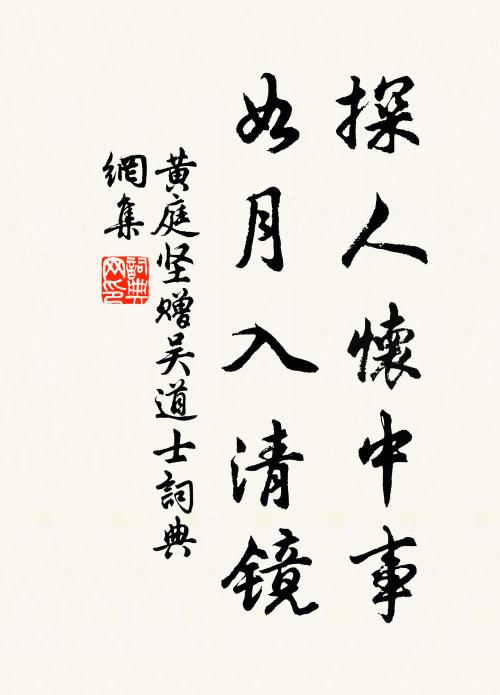 探人懷中事
如月入清镜
黄庭坚赠吴道士詞典
網集
詞典
网印